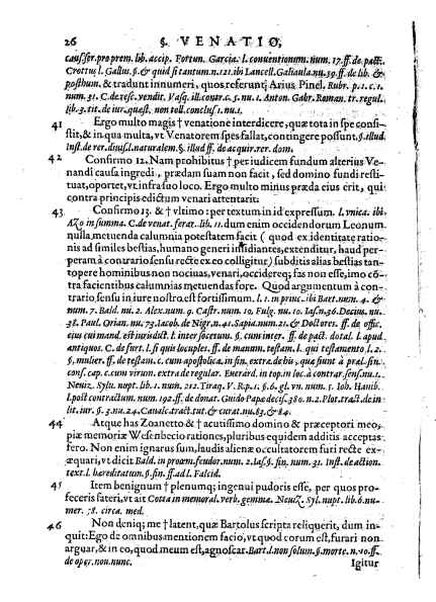 26 §. VENATIO,
caus. for. pro prem. lib. accip. Fortun. Garcia. l. conventionum. num. 17. ff. de pact.
Crottus l. Gallus §. & quid si tantum. n. 121. ibi Lancell. Galiaula. nu. 39. ff. de lib. &
posthum. & tradunt innumeri, quos referunt; Arius Pinel. Rubr. p. 1. c. 1.
num. 31. C. de resc. vendit. Vasq. ill. contr. c. 5. nu. 1. Anton. Gabr. Roman. tr. regul.
lib. 3. tit. de iur. quæst. non toll. conclus. 1. nu. 1.
41 Ergo multo magis † venatione interdicere, quæ tota in spe consi-
stit, & in qua multa, ut Venatorem spes fallat, contingere possunt. §. illud
Inst. de rer. divis. l. naturalem. §. illud ff. de acquir. rer. dom.
42 Confirmo 12. Nam prohibitus † per iudicem fundum alterius Ve-
nandi causa ingredi, prædam suam non facit, sed domino fundi resti-
tuat, oportet, ut infra suo loco. Ergo multo minus præda eius erit, qui
contra principis edictum venari attentarit:
43 Confirmo 13. & † ultimo: per textum in id expressum. l. unica. ibi
Azo in summa. C. de venat. ferar. lib. 11. dum enim occidendorum Leonum
nulla, metuenda calumnia potestatem facit ( quod ex identitate ratio-
nis ad similes bestias, humano generi insidiantes, extenditur, haud per-
peram à contrario sensu recte ex eo colligitur) subditis alias bestias tan-
topere hominibus non nocivas, venari, occidereq; fas non esse, imo cō-
tra facientibus calumnias metuendas fore. Quod argumentum à con-
trario, sensu in iure nostro, est fortissimum. l. 1. in princ. ibi Bart. num. 4. &
num. 7. Bald. nu. 2. Alex. num. 9. Castr. num. 10. Fulg. nu. 10. Ias. n. 36. Decius. nu.
38. Paul. Orian. nu. 73. Iacob. de Nigr. n. 41. Sapia. num. 21. & Doctores. ff. de offic.
eius cui mand. est iurisdict. l. inter socerum §. cum inter. ff. de pact. dotal. l. apud
antiquos. C. de furt. l. si quis locuples. ff. de manum. testam. l. qui testamento l. 2.
§. mulier. ff. de testam. c. cum apostolica, in fin. extra. de his, quæ fiunt à præl. sine
cons. cap. c. cum virum. extra de regular. Everard. in top. in loc. à contrar. sens. nu. 1.
Neviz. Sylv. nupt. lib. 1. num. 212. Tiraq. V. R. p. 1. §. 6. gl. vn. num. 5. Ioh. Hanib.
l. post contractum. num. 192. ff. de donat. Guido Papæ decis. 380. n. 2. Plot. tract. de in
lit. iur. §. 3. nu. 24. Canalc. tract. tut. & curat. nu. 83. & 84.
44 Atque has Zoanetto & † acutissimo domino & præceptori meo,
piæ memoriæ Wesenbecio rationes, pluribus equidem additis acceptas
fero. Non enim ignarus sum, laudis alienæ occultatorem furi recte ex-
æquari, ut dicit Bald. in proœm. feudor. num. 2. Ias. §. fin. num. 31. Inst. de action.
text. l. hereditatum §. fin. ff. ad l. Falcid.
45 Item benignum † plenumq; ingenui pudoris esse, per quos pro-
feceris fateri, ut ait Cotta in memoral. verb. gemmæ. Neviz. Sylv. nupt. lib. 6. nu-
mer. 78. circa. med.
46 Non deniq; me † latent, quæ Bartolus scripta reliquerit, dum in-
quit: Ego de omnibus mentionem facio, vt quod eorum est, furari non
arguar, & in eo, quod meum est, agnoscar. Bart. l. non solum. §. morte. n. 40. ff.
de oper. nou. nunc.
Igitur